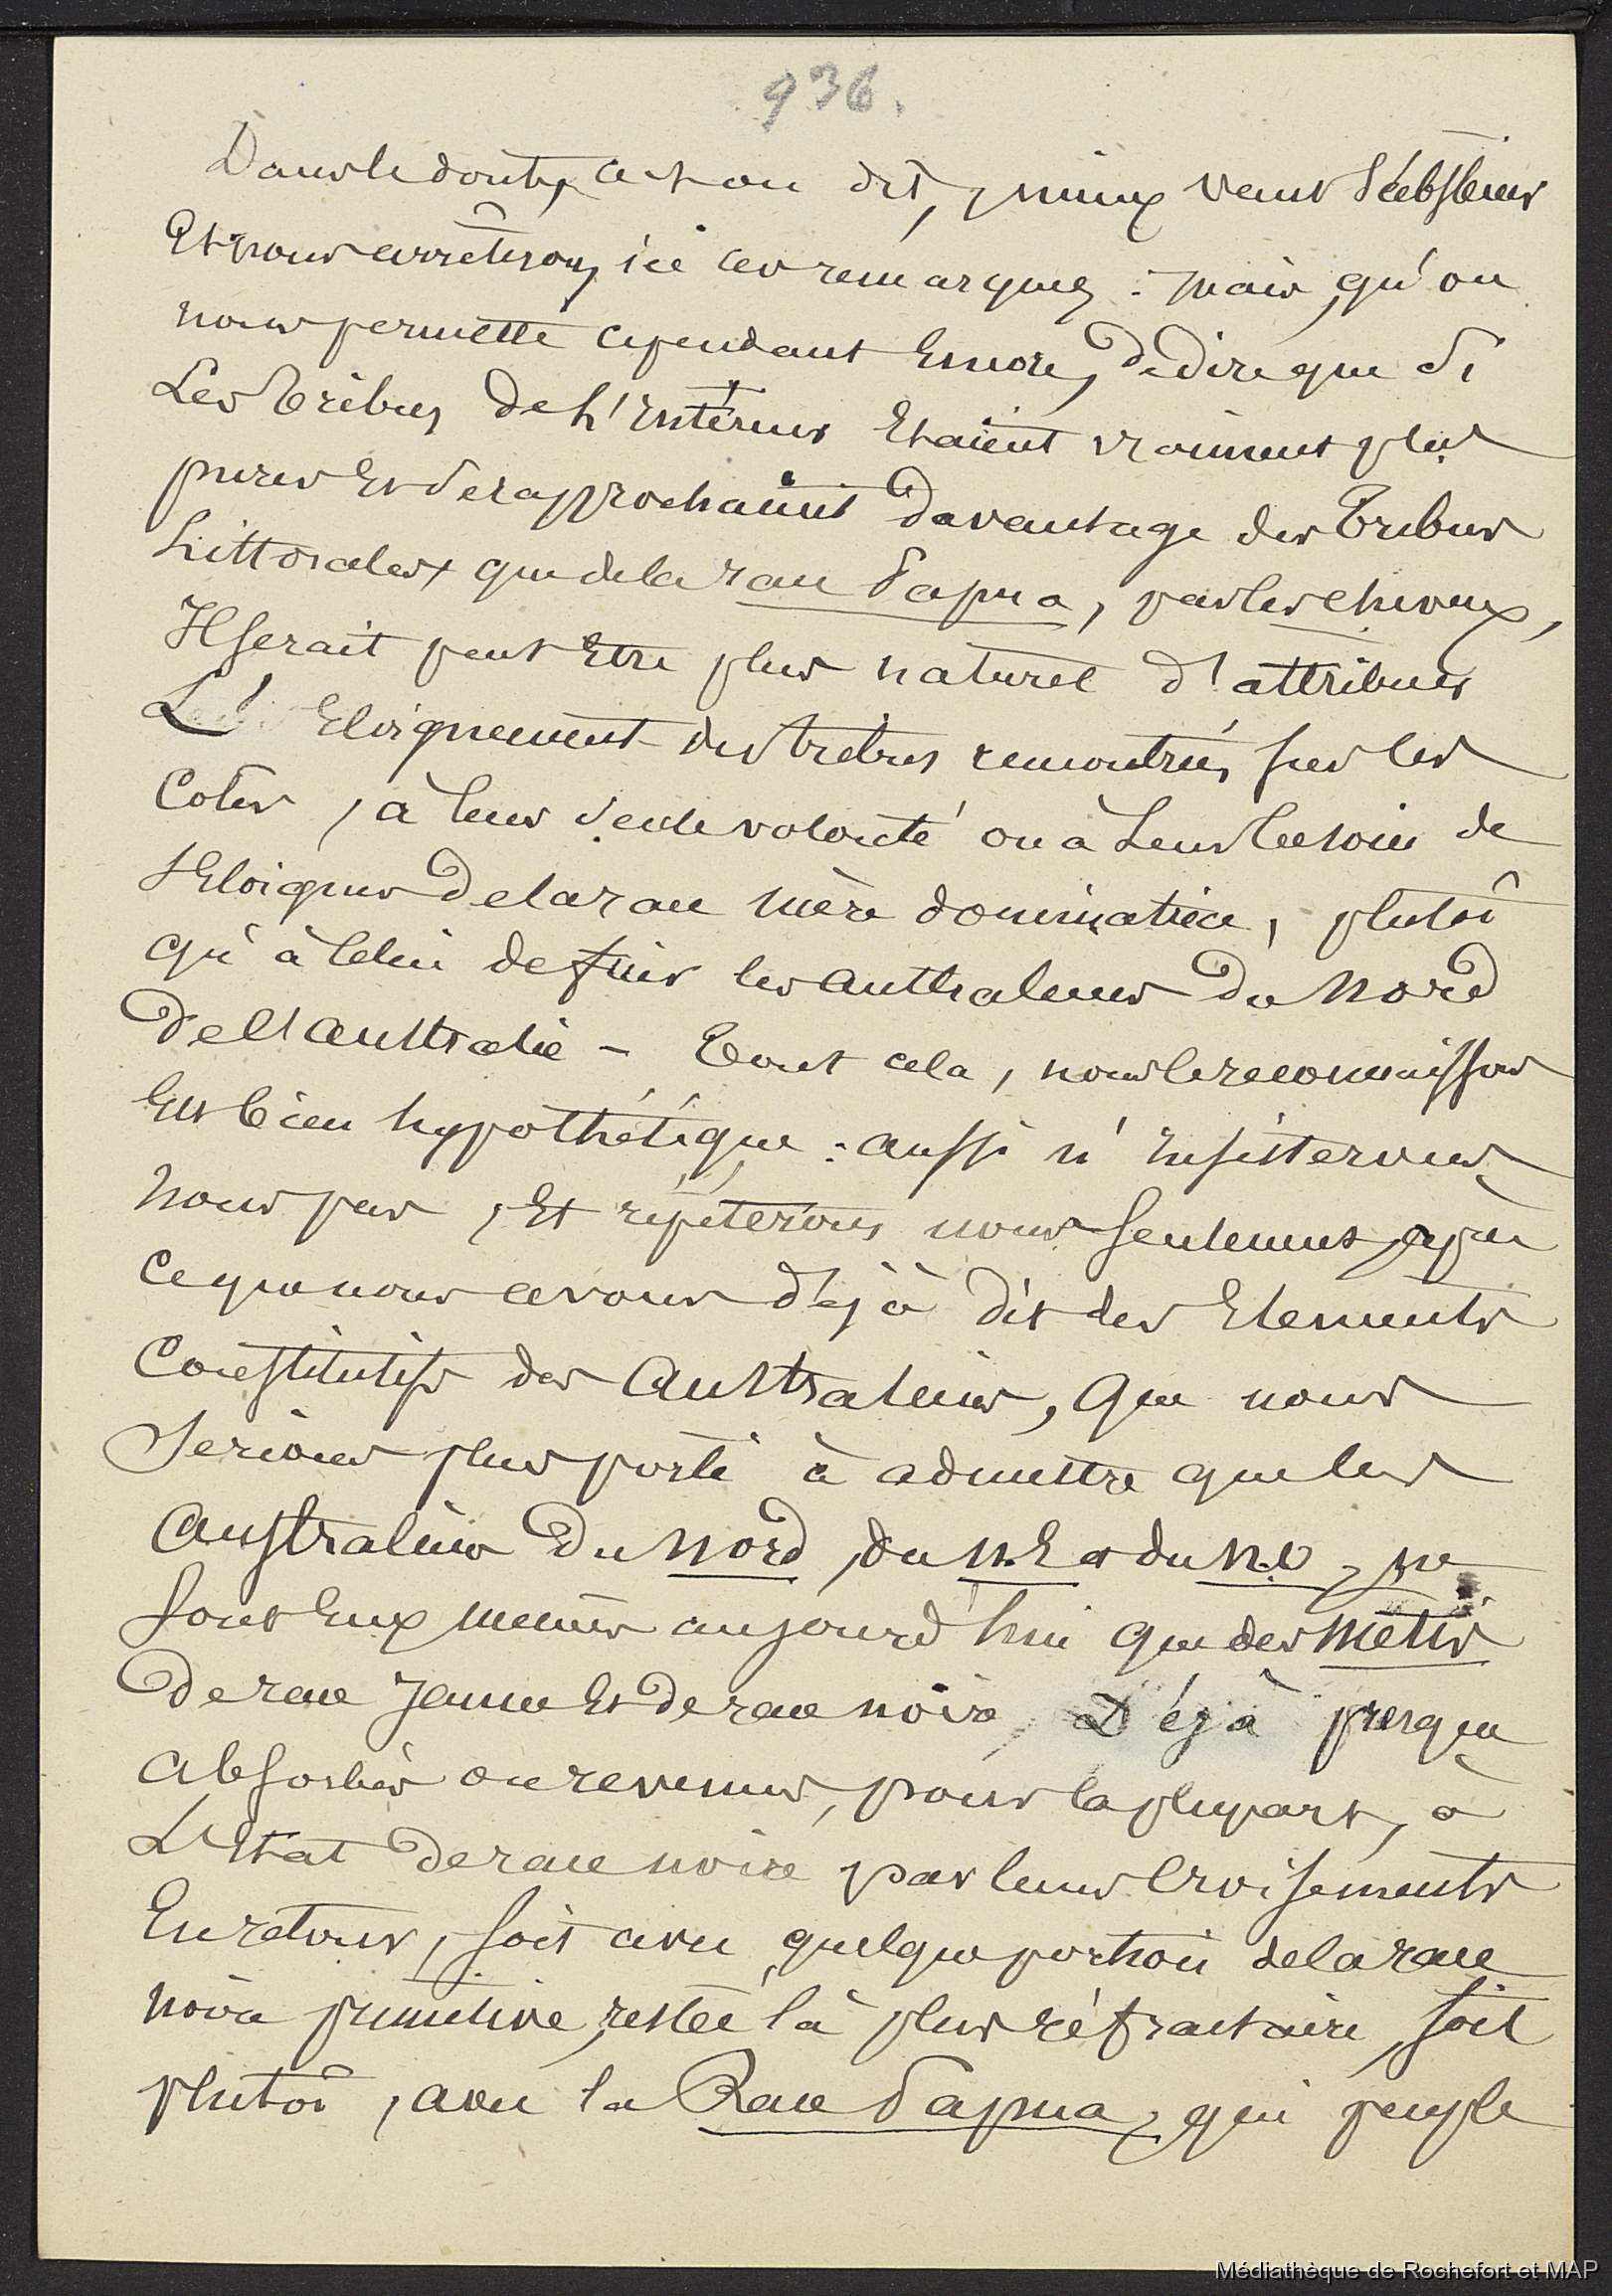 936.
Dans le doute, a-t-on dit, mieux vaut s'abstenir
Et nous arrêterons ici ces remarques : mais, qu'on
nous permette cependant Encore, de dire que Si
Les Tribus de L'Intérieur Etaient vraiment plus
pures Et Se rapprochaient Davantage des Tribus
Littorales, que de la race Papua, par les cheveux,
Il serait peut Etre plus naturel d'attribuer
L' Eloignement des tribus rencontrées sur les
Cotes, à leur seule volonté ou à Leur besoin de
s'Eloigner De la race mère dominatrice, plutôt
qu'à Celui de fuir les australiens Du Nord
De l'australie - Tout cela, nous le reconnaissons
Est bien hypothétique : aussi n'insisterons
nous pas, Et répéterons nous seulement, après
Ce que nous avons déjà dit des Elements
Constitutifs des Australiens, que nous
Serions plus porté à admettre que les
Australiens Du Nord, du N.E et du N.O, ne
sont Eux memes aujourd'hui que des métis
De race Jaune Et de race noire, Déjà presque
absorbés ou revenus, pour la plupart, à
L'Etat de race noire par leurs Croisements
En retour, soit avec quelque portion de la race
noire primitive, restée là plus réfractaire, soit
plutôt, avec la Race Papua, qui peuple
Médiathèque de Rochefort et MAP